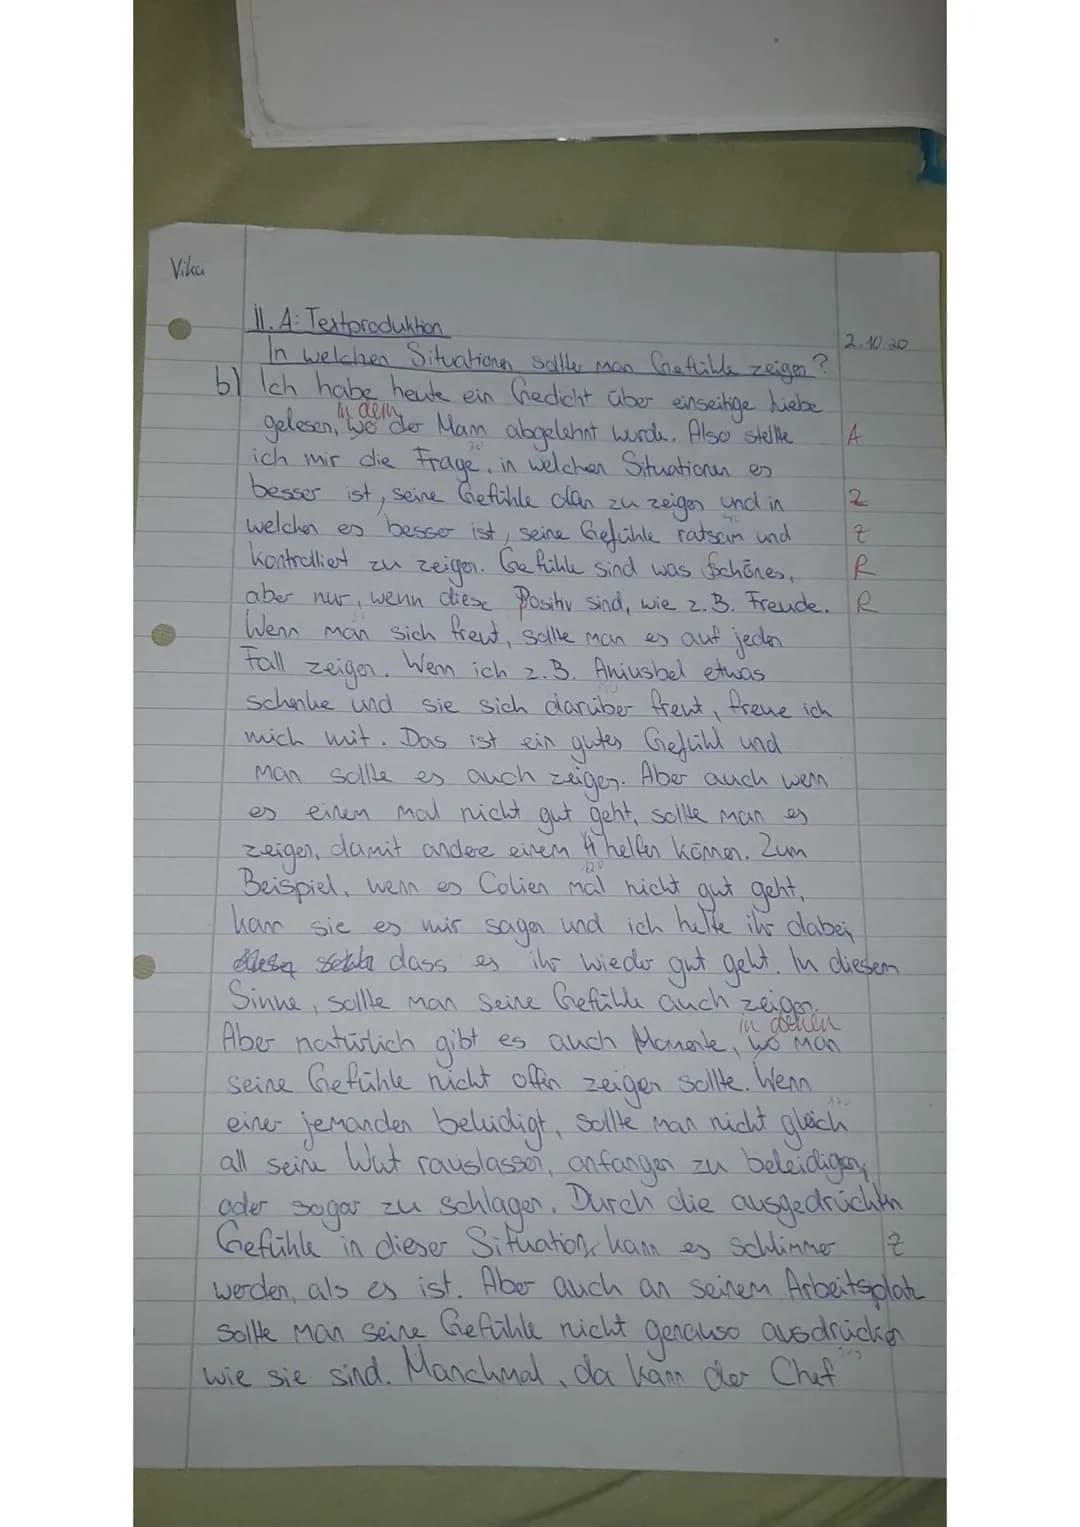 Vika
II. A: Textproduktion
2.10.20
In welchen Situationen sollte man Gefühle zeigen?
b) Ich habe heute ein Gedicht über einseitige Liebe
in dem
gelesen, wo der Mann abgelehnt wurde. Also stellte A
ich mir die Frage, in welchen Situationen es
besser ist, seine Gefühle offen zu zeigen und in Z
welchen es besser ist, seine Gefühle ratsam und Z
kontrolliert zu zeigen. Gefühle sind was Schönes, R
aber nur, wenn diese Positiv sind, wie z.B. Freude. R
Wenn man sich freut, sollte man es auf jeden
Fall zeigen. Wenn ich z.B. etwas
schenke und sie sich darüber freut, freue ich
mich mit. Das ist ein gutes Gefühl und
man sollte es auch zeigen. Aber auch wenn
es einem mal nicht gut geht, sollte man es
zeigen, damit andere einem helfen können. Zum
Beispiel, wenn es Colien mal nicht gut geht,
kann sie es mir sagen und ich helfe ihr dabei,
dass es ihr wieder gut geht. In diesem
Sinne, sollte man seine Gefühle auch zeigen.
in denen
Aber natürlich gibt es auch Momente, wo man
seine Gefühle nicht offen zeigen sollte. Wenn
einer jemanden beleidigt, sollte man nicht gleich
all seine Wut rauslassen, anfangen zu beleidigen,
oder sogar zu schlagen. Durch die ausgedrückten
Gefühle in dieser Situation, kann es schlimmer Z
werden, als es ist. Aber auch an seinem Arbeitsplatz
sollte man seine Gefühle nicht genauso ausdrücken
wie sie sind. Manchmal, da kann der Chef